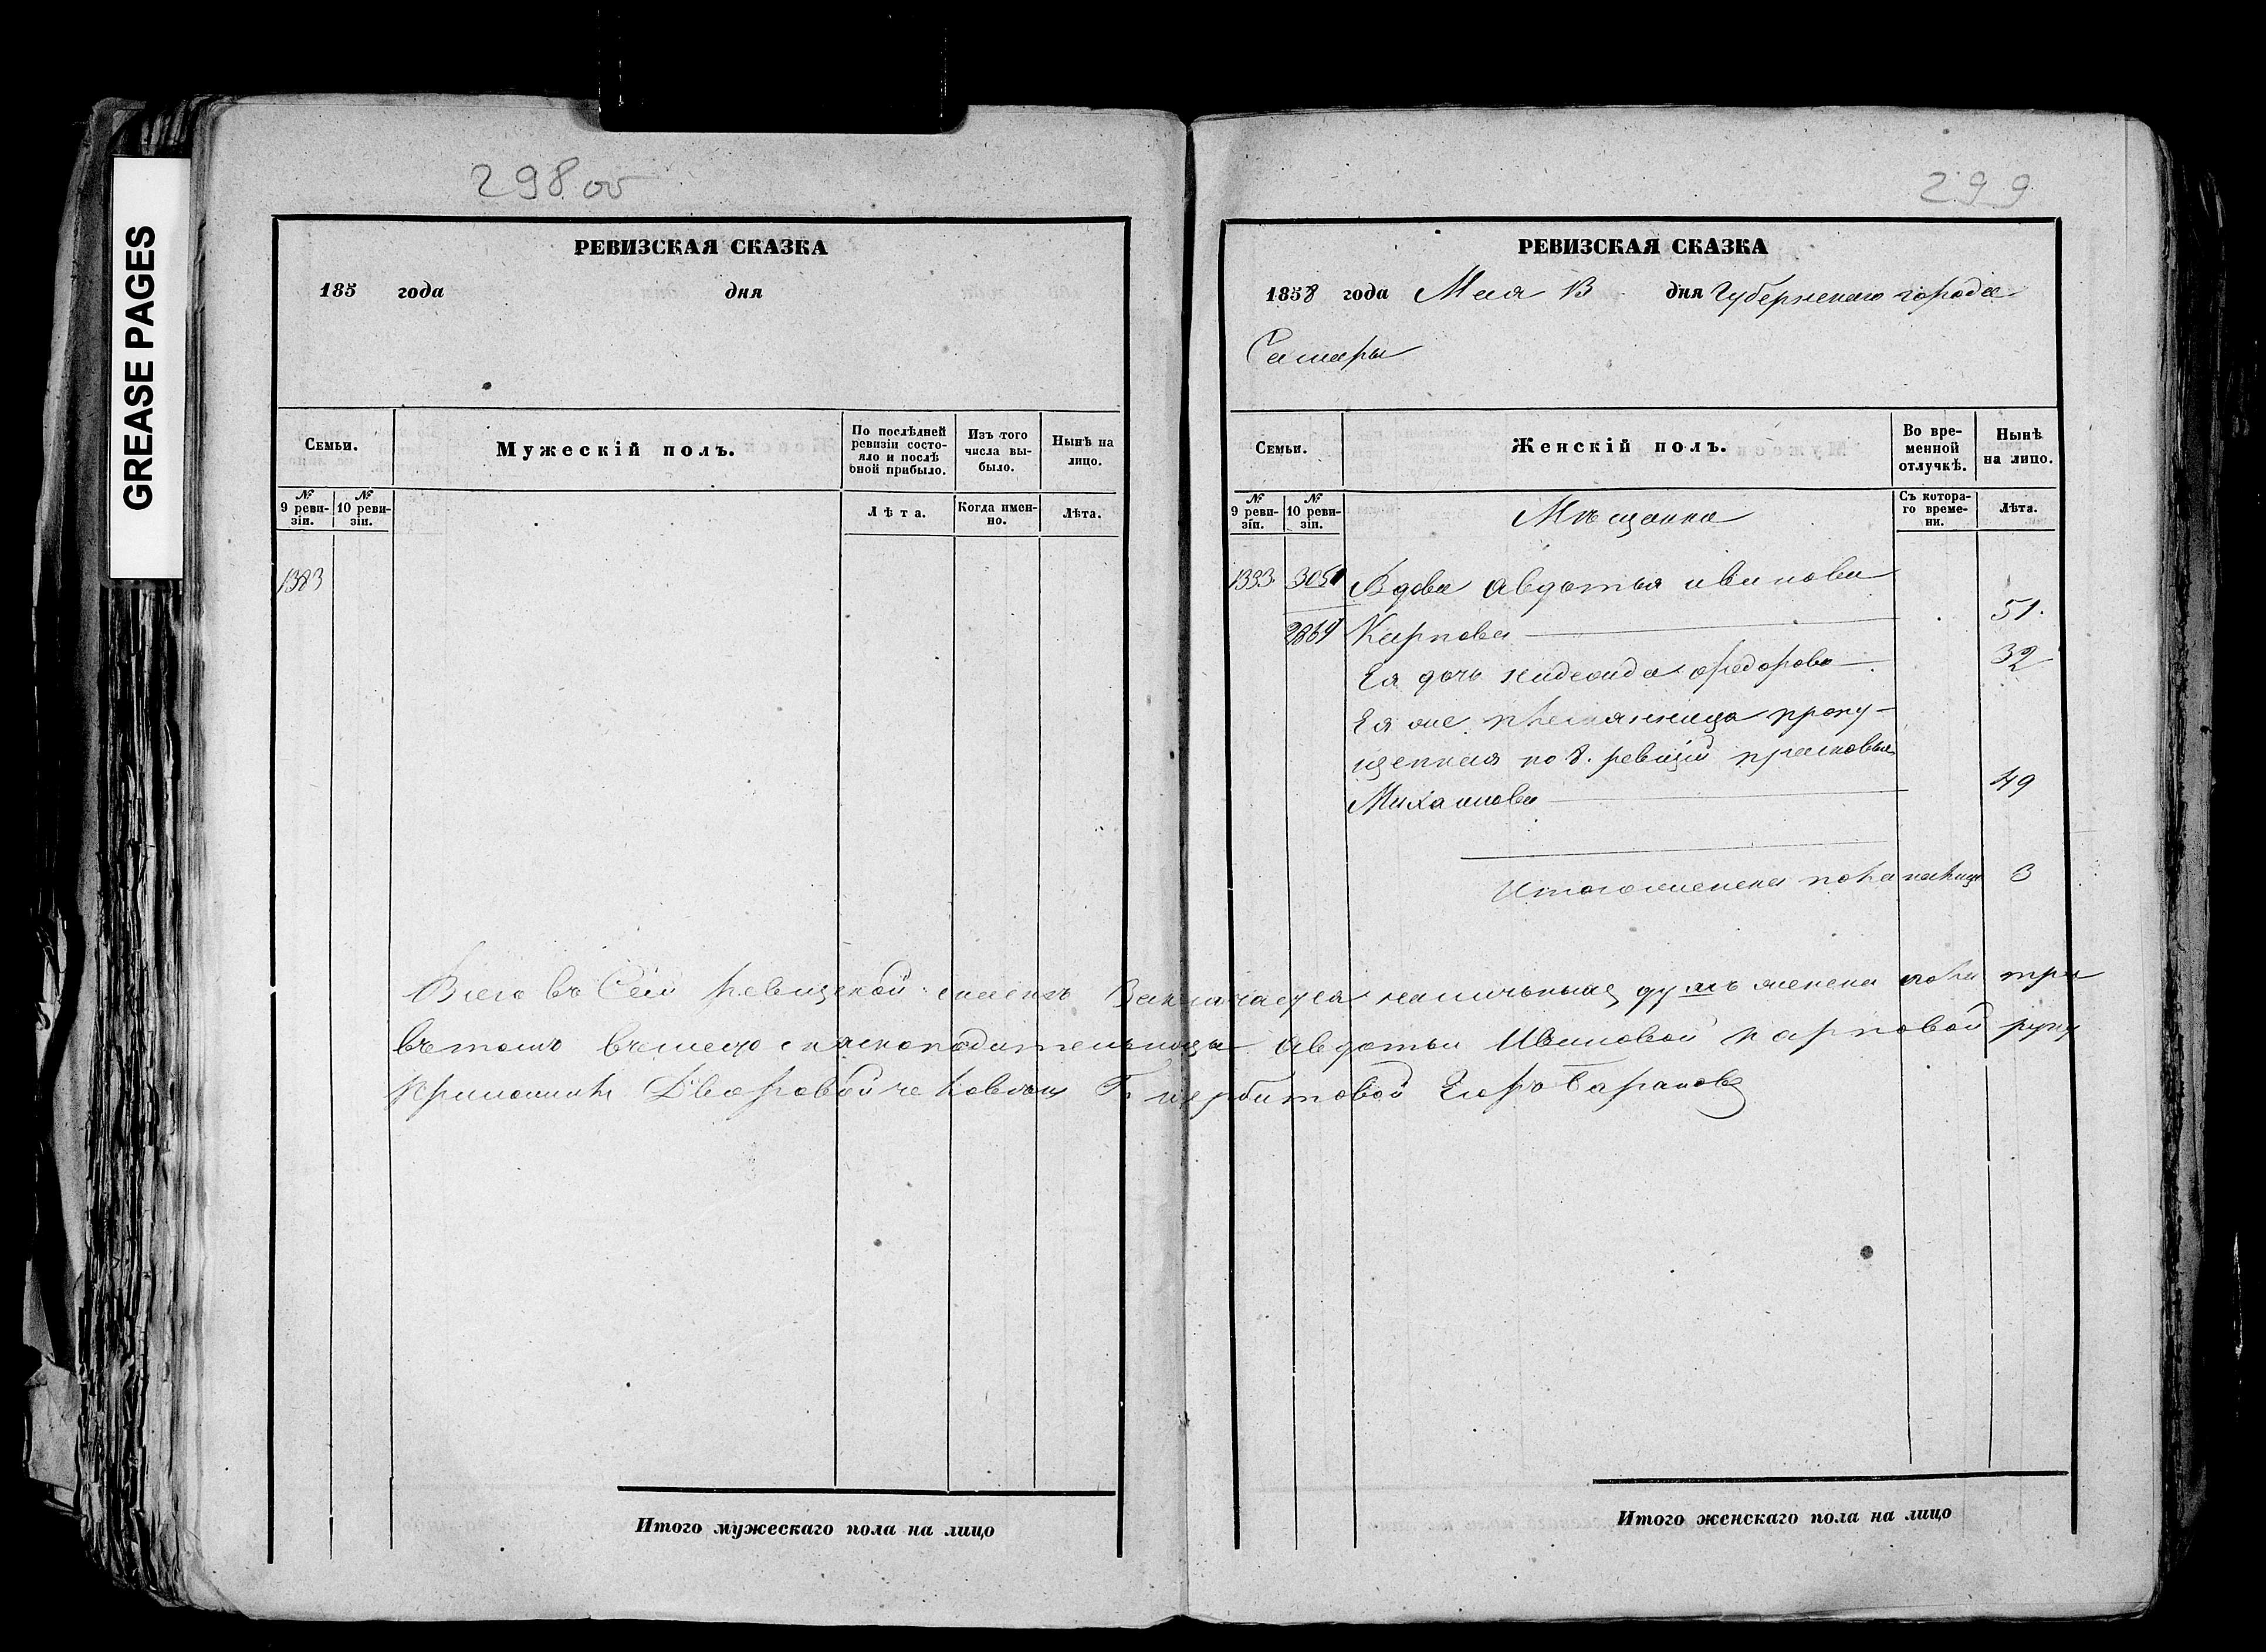 GREASE PAGES
298 об
РЕВИЗСКАЯ СКАЗКА
185 года дня
Семьи.
Мужескій полъ.
По послѣдней ревизіи состо-
яло и послѣ оной прибыло.
Изъ того числа вы-
было.
Нынѣ на лицо.
№ 9 реви-
зіи.
№ 10 реви-
зіи.
Лѣта.
Когда имен-
но.
Лѣта.
1383
299
РЕВИЗСКАЯ СКАЗКА
1858 года Мая 13 дня Губернскаго города
Самары
Семьи.
Женскій полъ.
Во вре-
менной отлучкѣ.
Нынѣ на лицо.
№ 9 реви-
зіи.
№ 10 реви-
зіи.
Мѣщанка
Съ котора-
го време-
ни.
Лѣта.
1333 3051 Вдова Авдотья Иванова
2864 Карпова 51.
Ея дочь Федорова 32
Ея же племянница пропу-
щенная по 8. ревизіи Прасковья
Михайлова 49
Итого женска пола налицо 3
Всего въ Сей ревизской сказкѣ Заключается наличныхъ душъ женска пола три
въ томъ вмѣсто сказкоподательницы Авдотьи Ивановой Карповой руку
приложилъ Дворовой человѣкъ Г. Егоръ Барановъ
Итого мужескаго пола на лицо
Итого женскаго пола на лицо